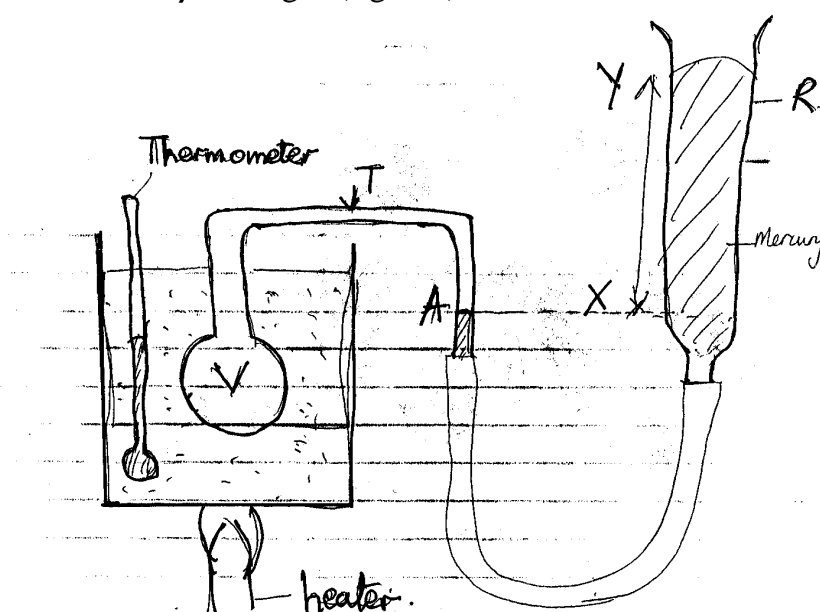 Thermometer
T
Y
R
Mercury
A
X
X
V
heater.